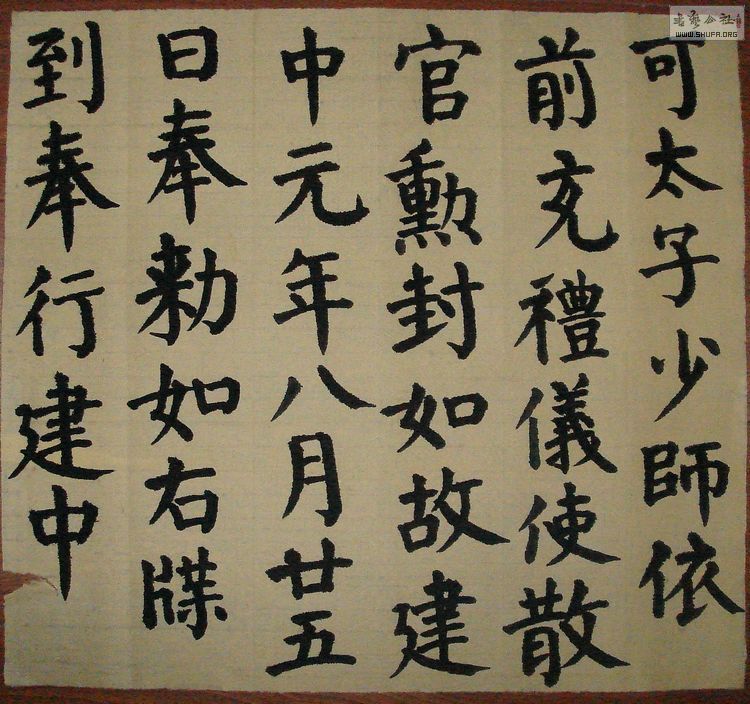 可太子少師依
前充禮儀使散
官勲封如故建
中元年八月廿五
日奉勑如右牒
到奉行建中
書藝公社
WWW.SHUFA.ORG